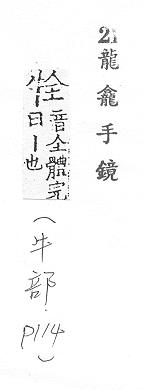 21龍龕手鏡
牷音全體完
曰丨也
(牛部. P114)